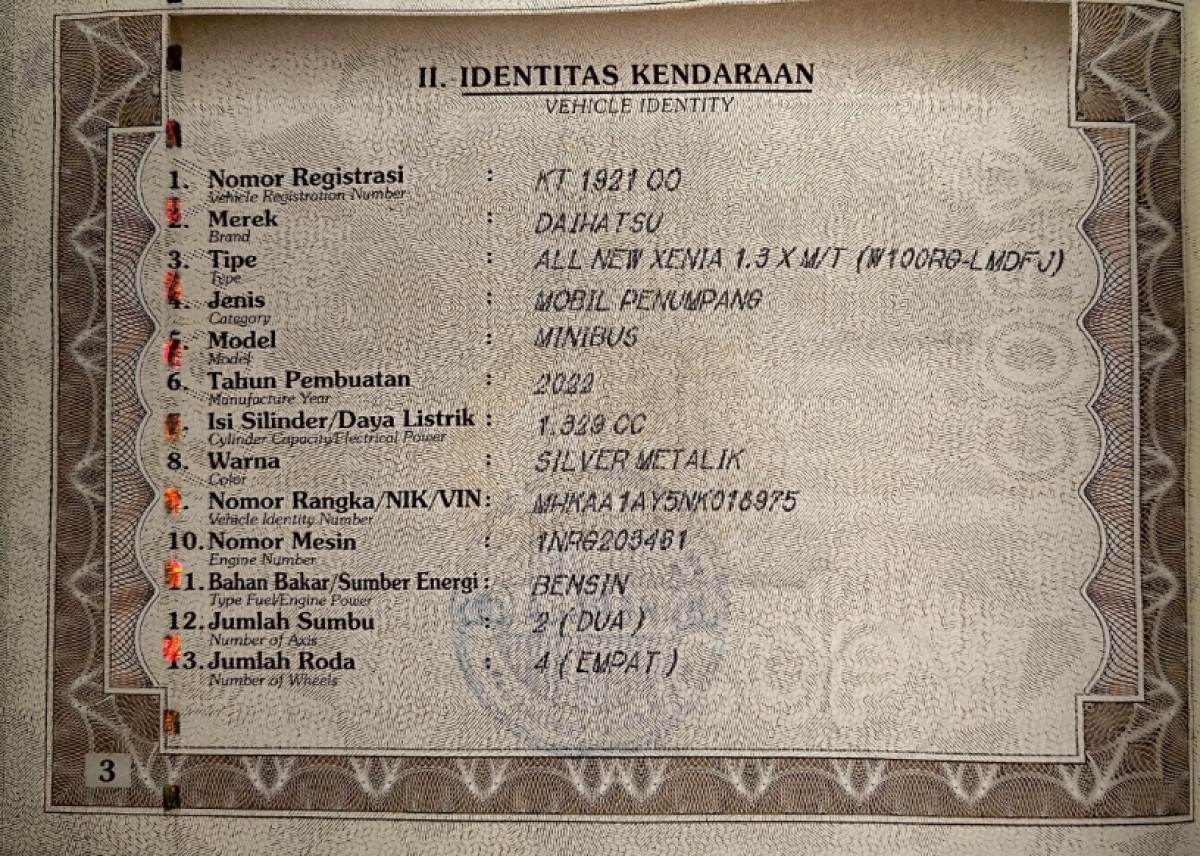 II. IDENTITAS KENDARAAN
VEHICLE IDENTITY
1. Nomor Registrasi : KT 1921 OO
Vehicle Registration Number
2. Merek : DAIHATSU
Brand
3. Tipe : ALL NEW XENIA 1.3 X M/T (W100RG-LMDFJ)
Type
4. Jenis : MOBIL PENUMPANG
Category
5. Model : MINIBUS
Model
6. Tahun Pembuatan : 2022
Manufacture Year
7. Isi Silinder/Daya Listrik : 1.329 CC
Cylinder Capacity/Electrical Power
8. Warna : SILVER METALIK
Color
9. Nomor Rangka/NIK/VIN : MHKAA1AY5NK018975
Vehicle Identity Number
10. Nomor Mesin : 1NRG203461
Engine Number
11. Bahan Bakar/Sumber Energi : BENSIN
Type Fuel/Engine Power
12. Jumlah Sumbu : 2 ( DUA )
Number of Axis
13. Jumlah Roda : 4 ( EMPAT )
Number of Wheels
3